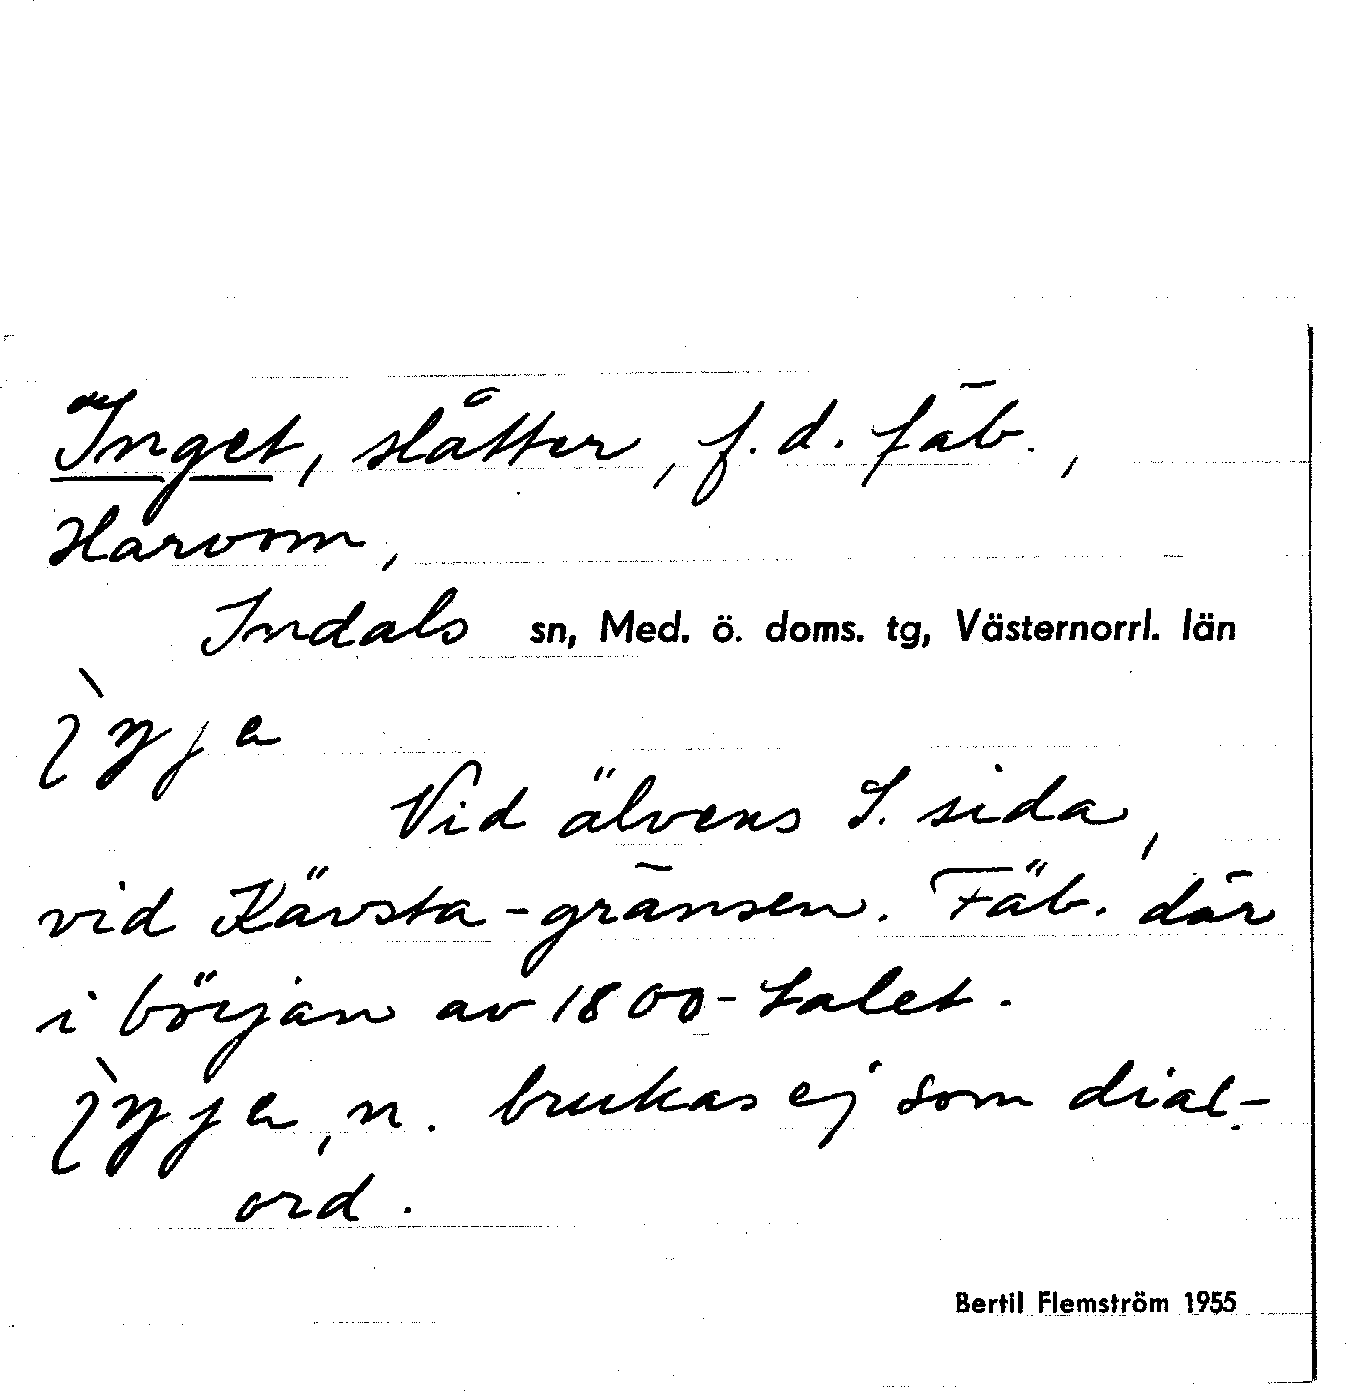 Inget, slåtter, f.d. fäb.,
Harvom,
Indals sn, Med. ö. doms. tg, Västernorrl. län
Vid älvens S. sida,
vid Kävsta-gränsen. Fäb. där
i början av 1800-talet.
n. brukas ej som dial-
ord.
Bertil Flemström 1955